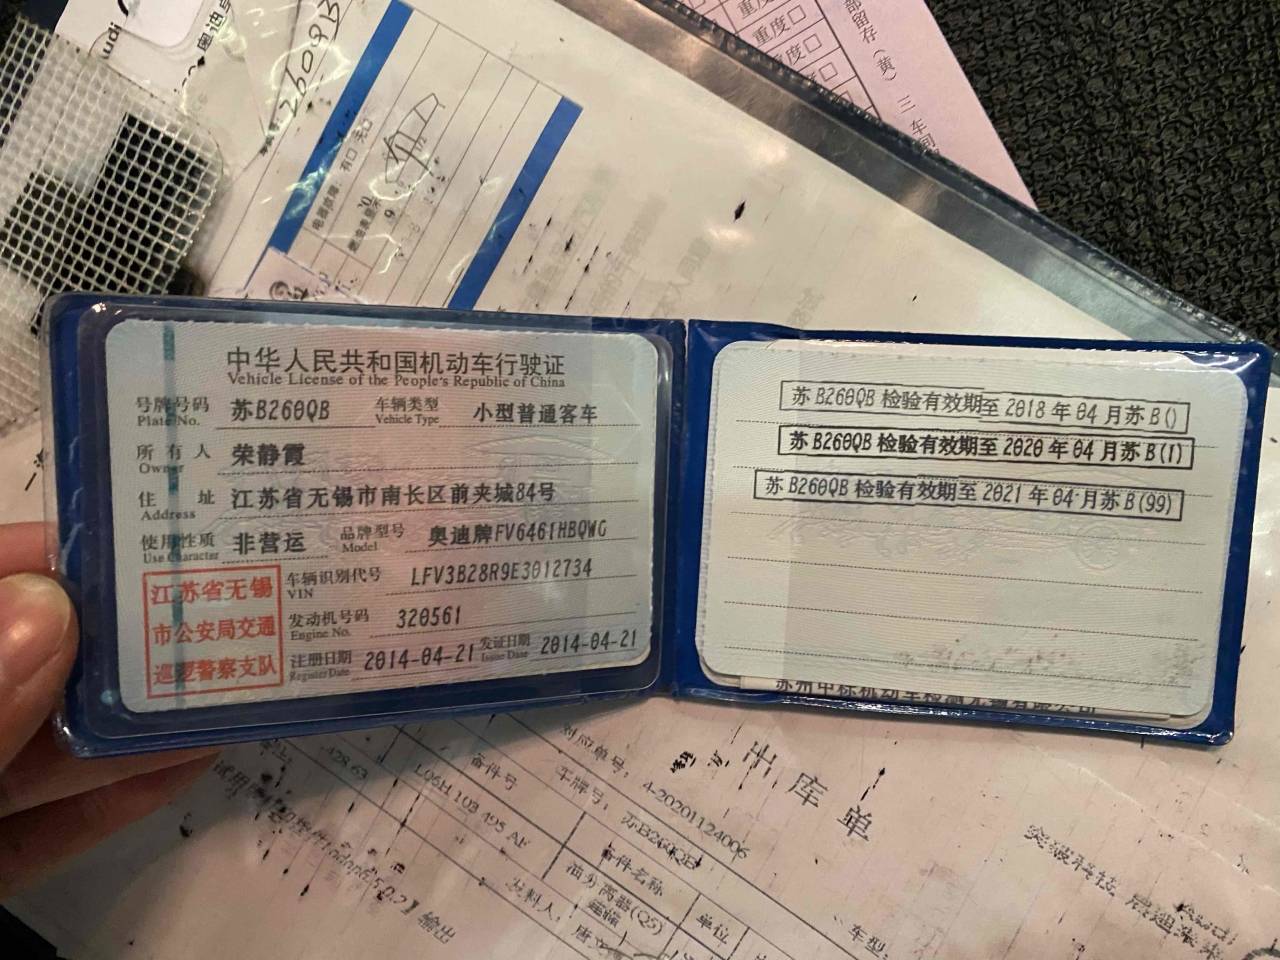 中华人民共和国机动车行驶证
Vehicle License of the People's Republic of China
号牌号码 苏B260QB 车辆类型 小型普通客车
Plate No. Vehicle Type
所有人 荣静霞
Owner
住址 江苏省无锡市南长区前夹城84号
Address
使用性质 非营运 品牌型号 奥迪牌FV6461HBQWG
Use Character Model
江苏省无锡
市公安局交通
巡逻警察支队
车辆识别代号 LFV3B28R9E3012734
VIN
发动机号码 320561
Engine No.
注册日期 2014-04-21 发证日期 2014-04-21
Register Date Issue Date
苏B260QB 检验有效期至 2018 年 04 月苏 B()
苏B260QB 检验有效期至 2020 年 04 月苏 B(1)
苏B260QB 检验有效期至 2021 年 04 月苏 B(99)
重度□
重度□
度□
部留存(黄) 三 车间
有□ 无□
出库单
对应单号: 4-20201124006
车牌号:
备件号
L06H 103 495 AF
备件名称
油分离器(Q5)
单位
车型:
发料人:
428.63
输出
突破科技 启迪未来